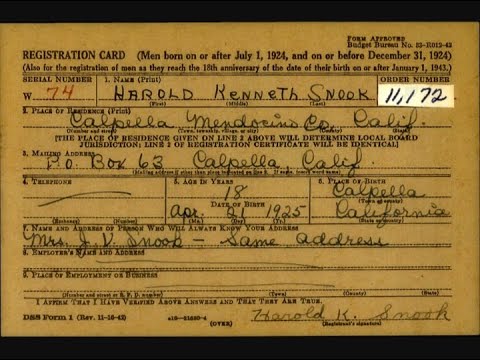 Form Approved
Budget Bureau No. 33-R012-42
REGISTRATION CARD (Men born on or after July 1, 1924, and on or before December 31, 1924)
(Also for the registration of men as they reach the 18th anniversary of the date of their birth on or after January 1, 1943.)
SERIAL NUMBER 1. NAME (Print) ORDER NUMBER
W 74 HAROLD KENNETH SNOOK 11,172
(First) (Middle) (Last)
2. PLACE OF RESIDENCE (Print)
Calpella Mendocino Co. Calif.
(Number and street) (Town, township, village, or city) (County) (State)
[THE PLACE OF RESIDENCE GIVEN ON LINE 2 ABOVE WILL DETERMINE LOCAL BOARD
JURISDICTION; LINE 2 OF REGISTRATION CERTIFICATE WILL BE IDENTICAL]
3. MAILING ADDRESS
P.O. Box 63 Calpella, Calif.
[Mailing address if other than place indicated on line 2. If same, insert word same]
4. TELEPHONE 5. AGE IN YEARS 6. PLACE OF BIRTH
18 Calpella
DATE OF BIRTH (Town or county)
Apr. 21 1925 California
(Exchange) (Number) (Mo.) (Day) (Yr.) (State or country)
7. NAME AND ADDRESS OF PERSON WHO WILL ALWAYS KNOW YOUR ADDRESS
Mrs. J. V. Snook - Same address
8. EMPLOYER'S NAME AND ADDRESS
9. PLACE OF EMPLOYMENT OR BUSINESS
(Number and street or R. F. D. number) (Town) (County) (State)
I AFFIRM THAT I HAVE VERIFIED ABOVE ANSWERS AND THAT THEY ARE TRUE.
DSS Form 1 (Rev. 11-16-42) (OVER) Harold K. Snook
(Registrant's signature)